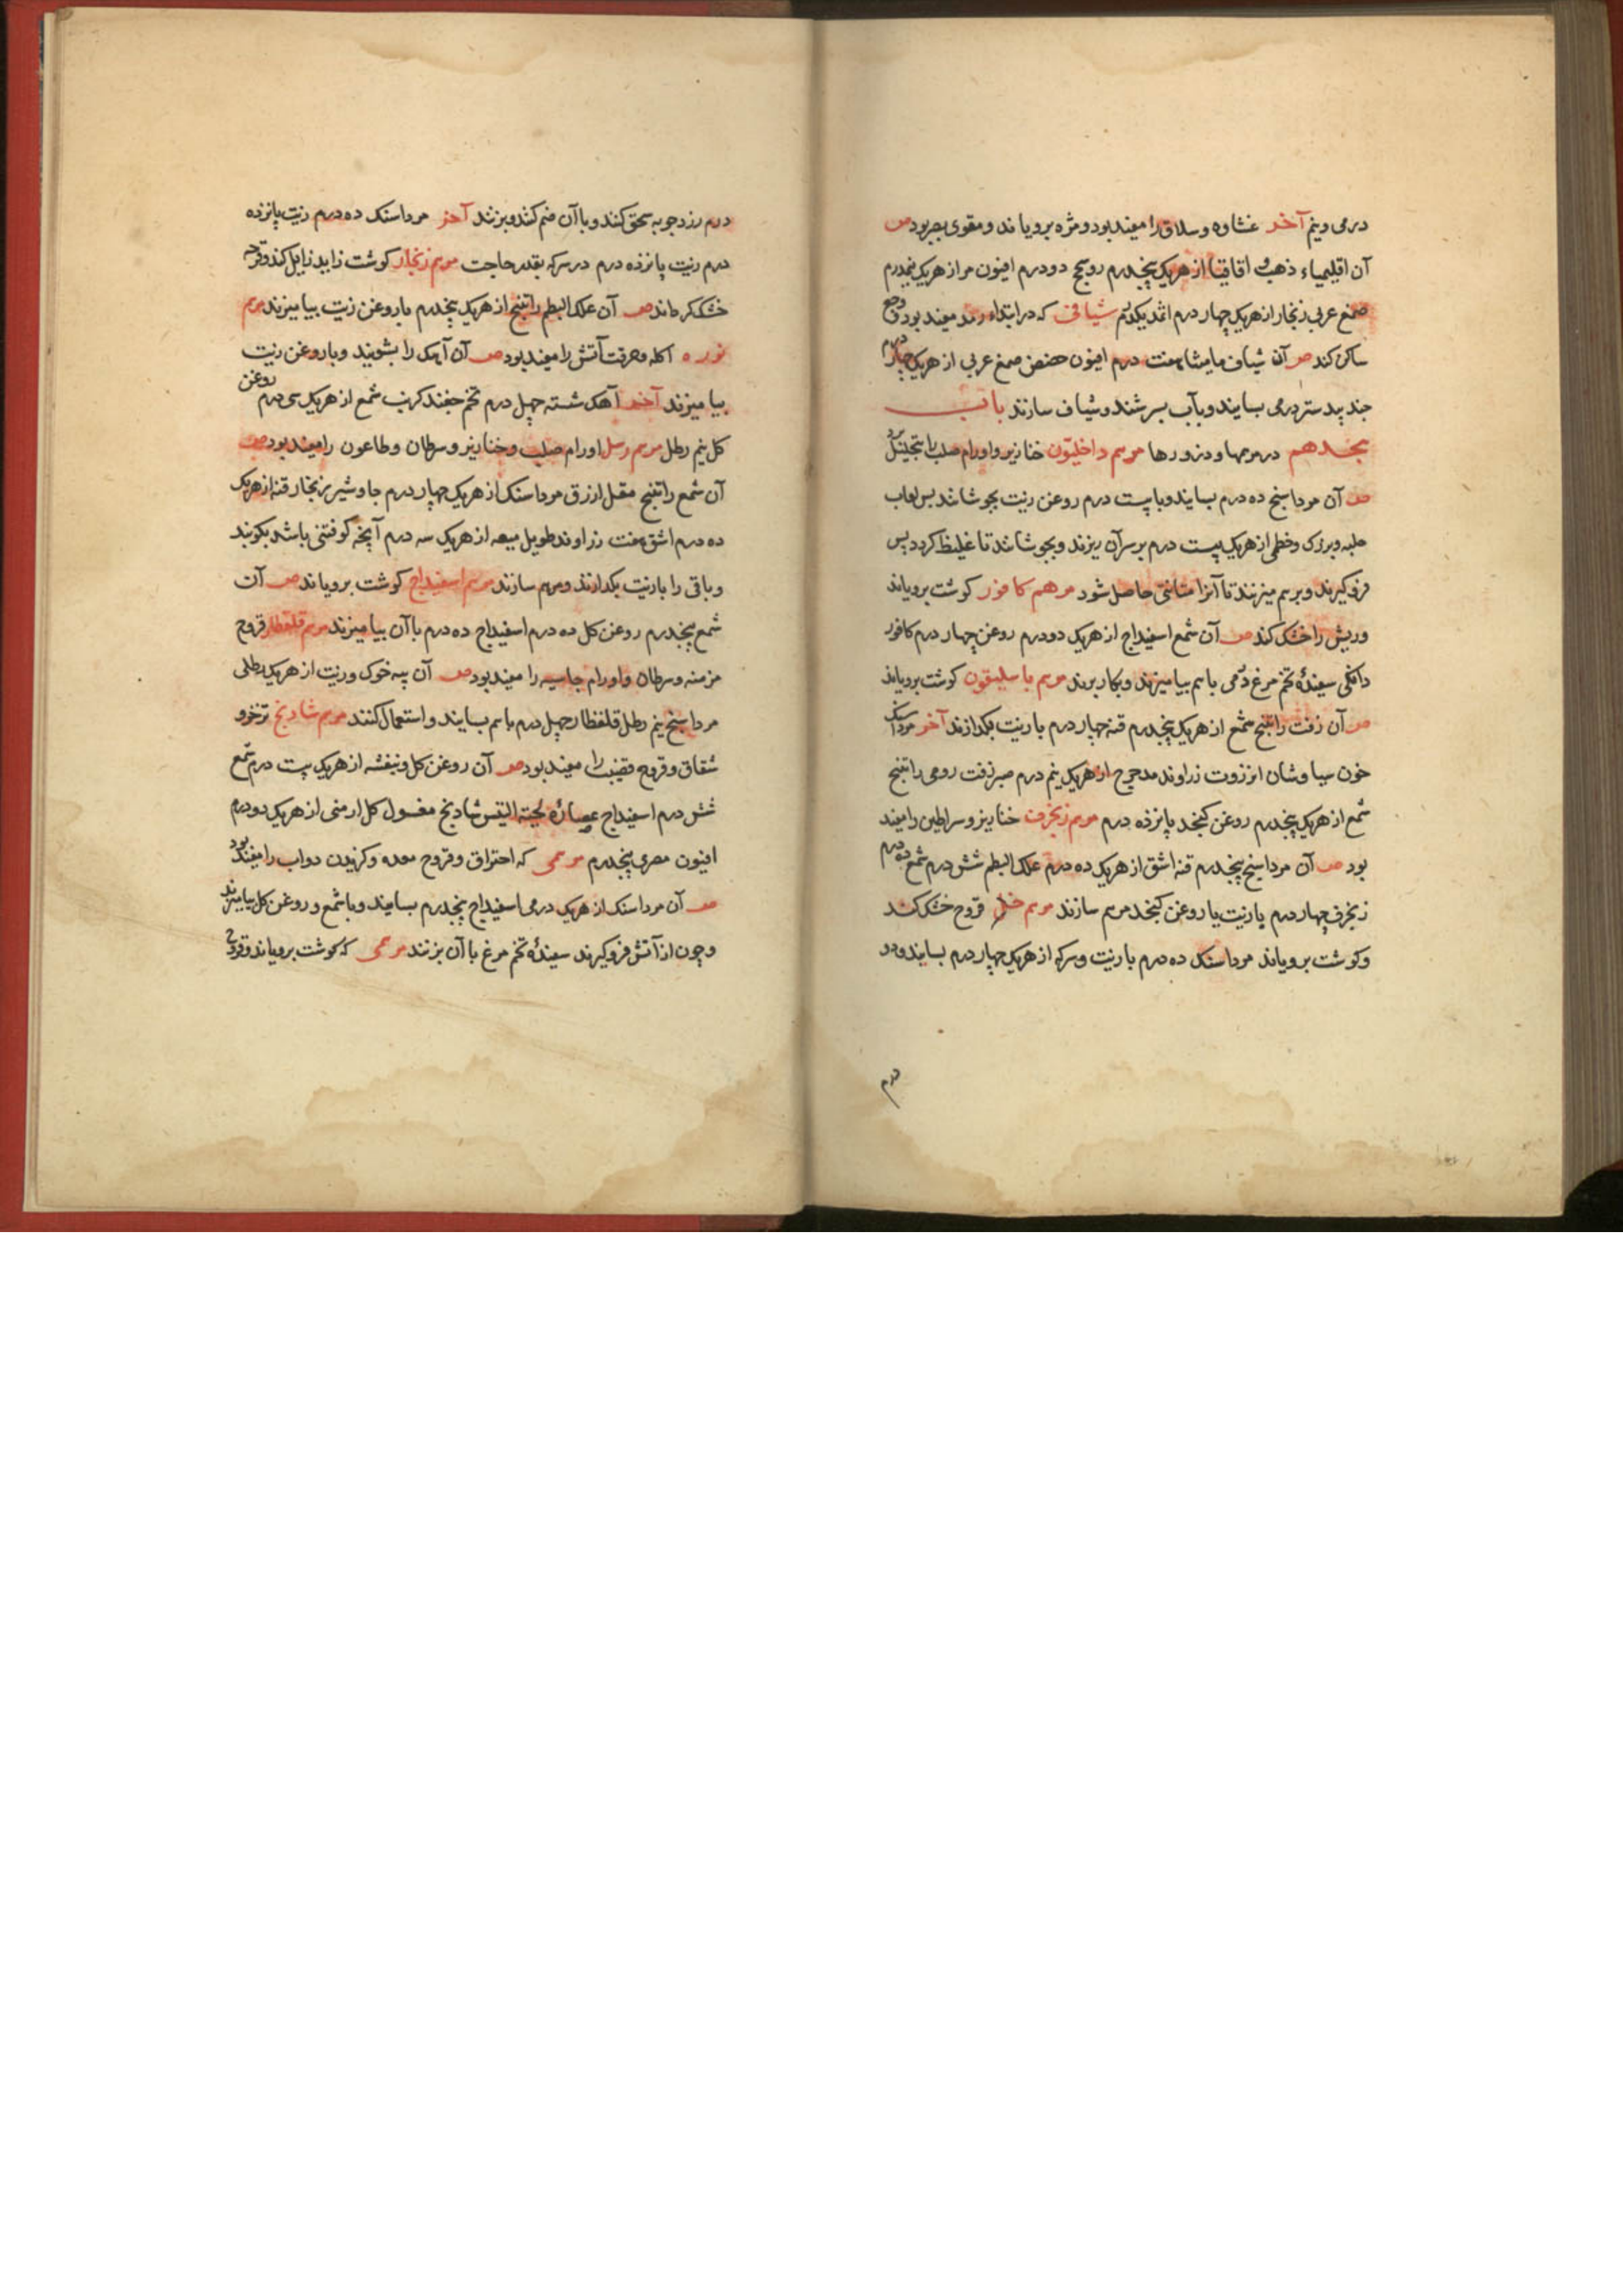 درمی ونیم آخر غشاوه وسلاق را مفید بود ومژه برویاند ومقوی بصر بود ص
آن اقلیمیاء ذهب و اقاقیا از هریک پنجدرم روسختج دودرم افیون مر از هریک نیمدرم
صمغ عربی زنجار از هریک چهار درم اثمد یکدرم شیافی که در ابتداء رمد مفید بود وجع
ساکن کند ص آن شیاف مامیثا هفت درم افیون حضض صمغ عربی از هریک چهار درم
جند بیدستر درمی بسایند وبآب بسرشند وشیاف سازند باب
هجدهم در مرهمها وذرورها مرهم داخلیون خنازیر واورام صلب را بتحلیل برد
ص آن مرداسنج ده درم بسایند وبا بیست درم روغن زیت بجوشانند پس لعاب
حلبه وبزرک وخطمی از هریک بیست درم بر سر آن ریزند وبجوشانند تا غلیظ کردد پس
فروکیرند وبرهم میزنند تا آنرا متانتی حاصل شود مرهم کافور کوشت برویاند
وریش را خشک کند ص آن شمع اسفیداج از هریک دودرم روغن چهار درم کافور
دانکی سفیدهٔ تخم مرغ درمی باهم بیامیزند وبکار برند مرهم باسلیقون کوشت برویاند
ص آن زفت راتینج شمع از هریک پنجدرم قنه چهار درم با زیت بکدازند آخر مرداسنک
خون سیاوشان انزروت زراوند مدحرج از هریک نیم درم صبر زفت رومی راتینج
شمع از هریک پنجدرم روغن کنجد پانزده درم مرهم زنجرف خنازیر وسراطین را مفید
بود ص آن مرداسنج پنجدرم قنه اشق از هریک ده درم علک البطم شش درم شمع ده درم
زنجرف چهار درم با زیت یا روغن کنجد مرهم سازند مرهم خل قروح خشک کند
وکوشت برویاند مرداسنک ده درم با زیت وسرکه از هریک چهار درم بسایند ودو
درم
درم زردچوبه سحق کنند وبا آن ضم کنند وبزنند آخر مرداسنک ده درم زیت پانزده
درم زیت پانزده درم در سرکه بقدر حاجت مرهم زنجار کوشت زاید زایل کند وقرحه
خشک کرداند ص آن علک البطم راتینج از هریک پنجدرم با روغن زیت بیامیزند مرهم
نوره اکله وحرقت آتش را مفید بود ص آن آهک را بشویند وبا روغن زیت
بیامیزند آخر آهک شسته چهل درم تخم چغندر کرنب شمع از هریک سی درم روغن
کل نیم رطل مرهم رسل اورام صلب وخنازیر وسرطان وطاعون را مفید بود ص
آن شمع راتینج مقل ازرق مرداسنک از هریک چهار درم جاوشیر زنجار قنه از هریک
ده درم اشق هفت زراوند طویل میعه از هریک سه درم آنچه کوفتنی باشد بکوبند
وباقی را با زیت بکدازند ومرهم سازند مرهم اسفیداج کوشت برویاند ص آن
شمع پنجدرم روغن کل ده درم اسفیداج ده درم با آن بیامیزند مرهم قلقطار قروح
مزمنه وسرطان واورام جاسیه را مفید بود ص آن پیه خوک وزیت از هریک رطلی
مرداسنج نیم رطل قلقطار چهل درم باهم بسایند واستعمال کنند مرهم شادنج
شقاق وقروح قضیب را مفید بود ص آن روغن کل وبنفشه از هریک بیست درم شمع
شش درم اسفیداج عصارهٔ لحیة التیس شادنج مغسول کل ارمنی از هریک دودرم
افیون مصری پنجدرم مرهمی که احتراق وقروح معده وکزیدن دواب را مفید بود
ص آن مرداسنک از هریک درمی اسفیداج پنجدرم بسایند وبا شمع وروغن کل بیامیزند
وچون از آتش فروکیرند سفیدهٔ تخم مرغ با آن بزنند مرهمی که کوشت برویاند وقروح